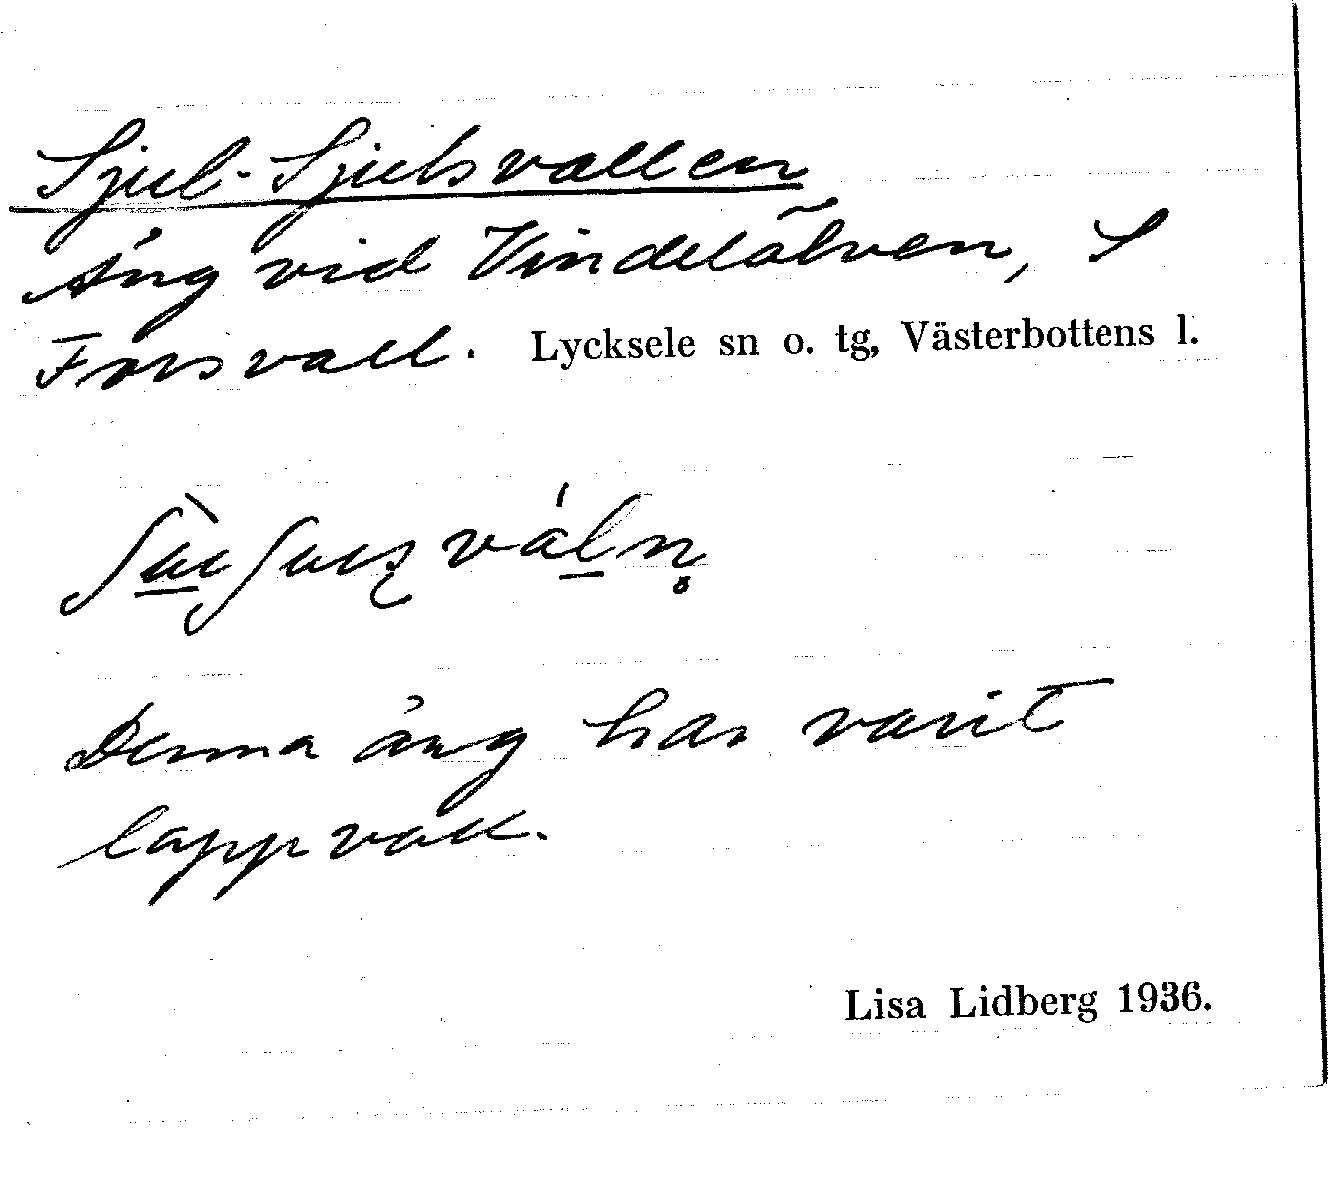 Sjul-Sjulsvallen
Äng vid Vindelälven, S
Forsvall. Lycksele sn o. tg, Västerbottens l.
Denna äng har varit
lappvall.
Lisa Lidberg 1936.